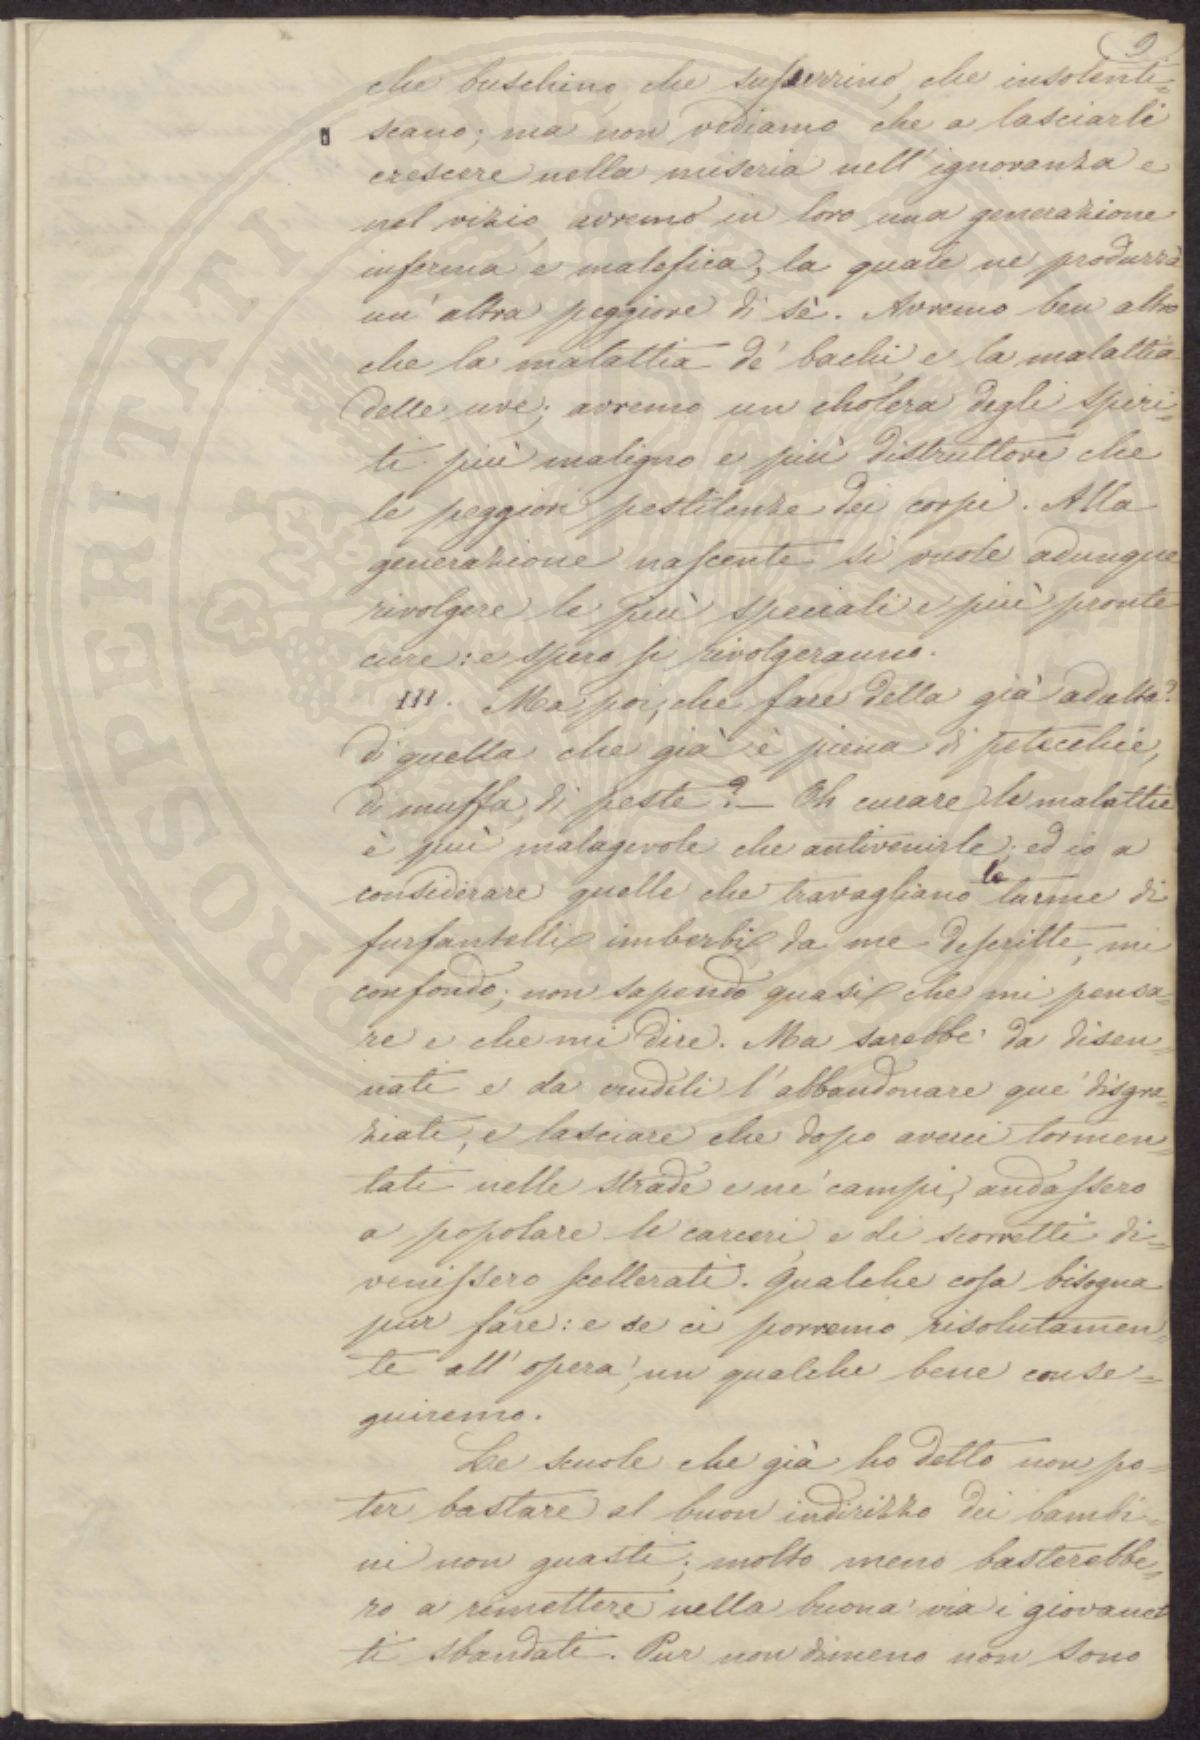 9
che buschino che susurrino, che insolenti=
scano; ma non vediamo che a lasciarli
crescere nella miseria nell'ignoranza e
nel vizio avremo in loro una generazione
inferma e malefica, la quale ne produrrà
un'altra peggiore di sè. Avremo ben altro
che la malattia de' bachi e la malattia
delle uve; avremo un cholera degli spiri=
ti più maligno e più distruttore che
le peggiori pestilenze dei corpi. Alla
generazione nascente si vuole adunque
rivolgere le più speciali e più pronte
cure: e spero si rivolgeranno.
III. Ma poi, che fare della già adulta?
di quella che già è piena di petecchie,
di muffa, di peste? — Oh curare le malattie
è più malagevole che antivenirle; ed io a
considerare quelle che travagliano le turme di
furfantelli imberbi da me descritte, mi
confondo; non sapendo quasi che mi pensa=
re e che mi dire. Ma sarebbe da disen=
nati e da crudeli l'abbandonare que' disgra=
ziati, e lasciare che dopo averci tormen=
tati nelle strade e ne' campi, andassero
a popolare le carceri, e di scorretti di=
venissero scellerati. Qualche cosa bisogna
pur fare: e se ci porremo risolutamen=
te all'opera, un qualche bene conse=
guiremo.
Le scuole che già ho detto non po=
ter bastare al buon indirizzo dei bambi=
ni non guasti; molto meno basterebbe=
ro a rimettere nella buona via i giovanet
ti sbandati. Pur non dimeno non sono
PROSPERITATI